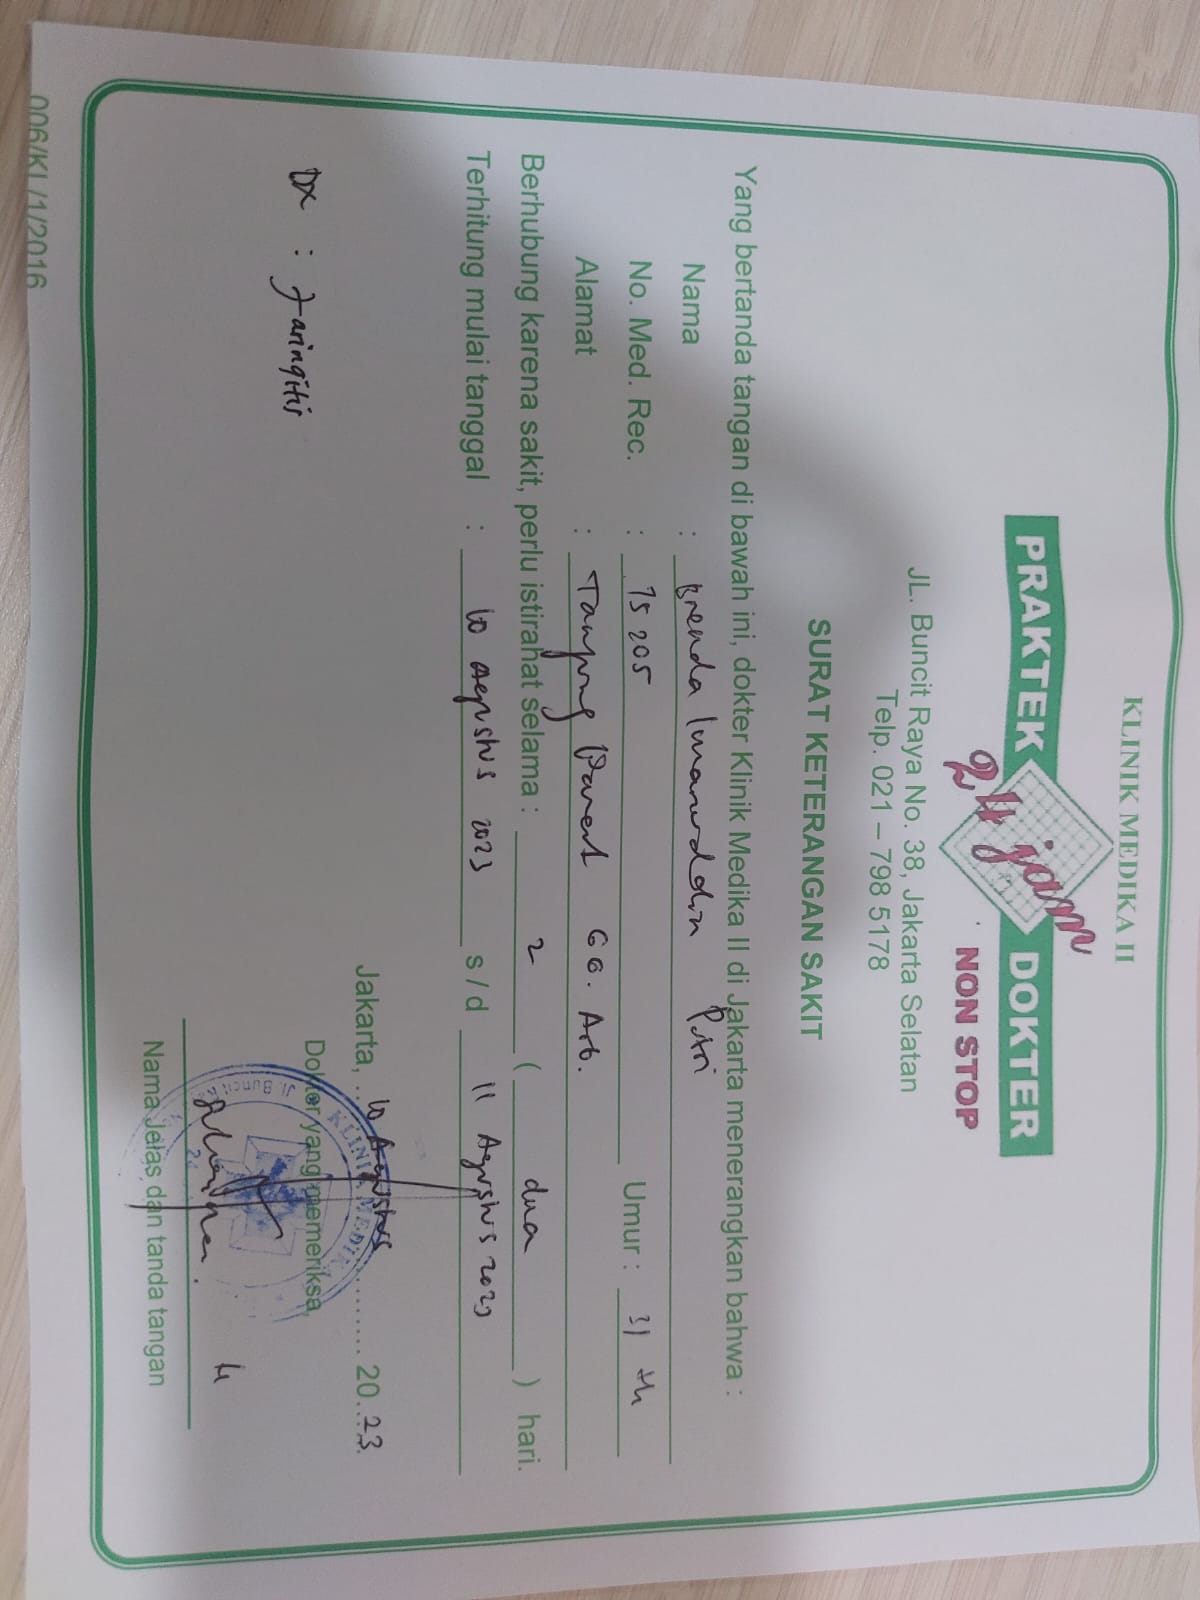 KLINIK MEDIKA II
PRAKTEK 24 jam DOKTER
NON STOP
JL. Buncit Raya No. 38, Jakarta Selatan
Telp. 021 – 798 5178
SURAT KETERANGAN SAKIT
Yang bertanda tangan di bawah ini, dokter Klinik Medika II di Jakarta menerangkan bahwa :
Nama : Brenda Imanuddin Putri
No. Med. Rec. : 75 205 Umur : 31 th
Alamat : Tanjung Barat
Berhubung karena sakit, perlu istirahat selama : 2 ( dua ) hari.
Terhitung mulai tanggal : 10 Agustus 2023 s/d 11 Agustus 2023
Jakarta, 10 Agustus 2023
Dx : Faringitis
Dokter yang memeriksa,
Nama Jelas dan tanda tangan
006/KL/1/2016